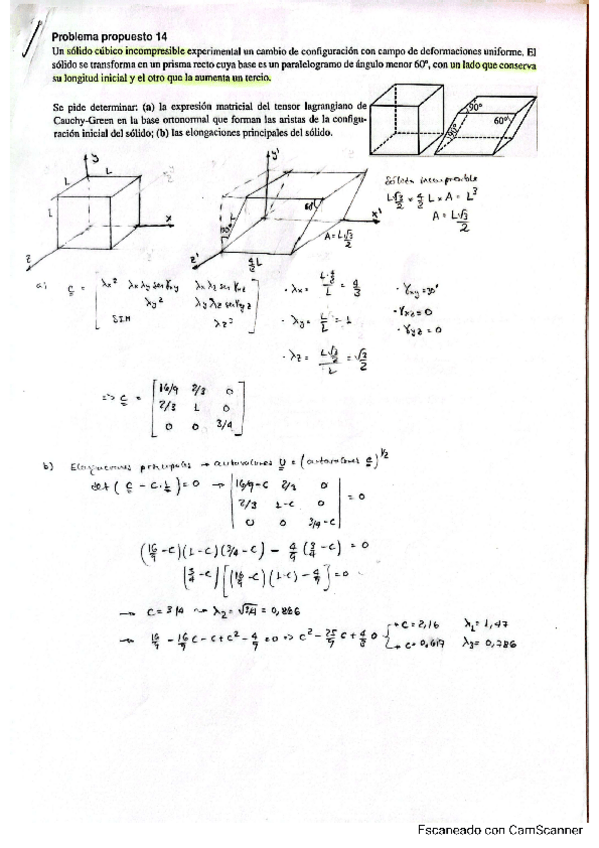 Problema propuesto 14
Un sólido cúbico incompresible experimental un cambio de configuración con campo de deformaciones uniforme. El
sólido se transforma en un prisma recto cuya base es un paralelogramo de ángulo menor 60º, con un lado que conserva
su longitud inicial y el otro que la aumenta un tercio.
Se pide determinar: (a) la expresión matricial del tensor lagrangiano de
Cauchy-Green en la base ortonormal que forman las aristas de la configu-
ración inicial del sólido; (b) las elongaciones principales del sólido.
90º
60º
90º
y
L
L
L
x
z
y'
60º
30º
x'
z'
4/3 L
A = L√3/2
Sólido incompresible
L√3/2 × 4/3 L × A = L³
A = L√3/2
a) C = [ λx² λxλy sen γxy λxλz sen γxz
λy² λyλz sen γyz
SIM λz² ]
· λx = (L·4/3)/L = 4/3
· λy = L/L = 1
· λz = (L√3/2)/L = √3/2
· γxy = 30º
· γxz = 0
· γyz = 0
=> C = [ 16/9 2/3 0
2/3 1 0
0 0 3/4 ]
b) Elongaciones principales → autovalores U = (autovalores C)^1/2
det (C - C·1) = 0 → | 16/9-C 2/3 0
2/3 1-C 0
0 0 3/4-C | = 0
(16/9 - C)(1-C)(3/4-C) - 4/9 (3/4 - C) = 0
(3/4 - C) [(16/9 - C)(1-C) - 4/9] = 0
→ C = 3/4 → λ2 = √3/4 = 0,866
→ 16/9 - 16/9 C - C + C² - 4/9 = 0 => C² - 25/9 C + 4/3 0
→ C = 2,16 λ1 = 1,47
→ C = 0,617 λ3 = 0,786
Escaneado con CamScanner